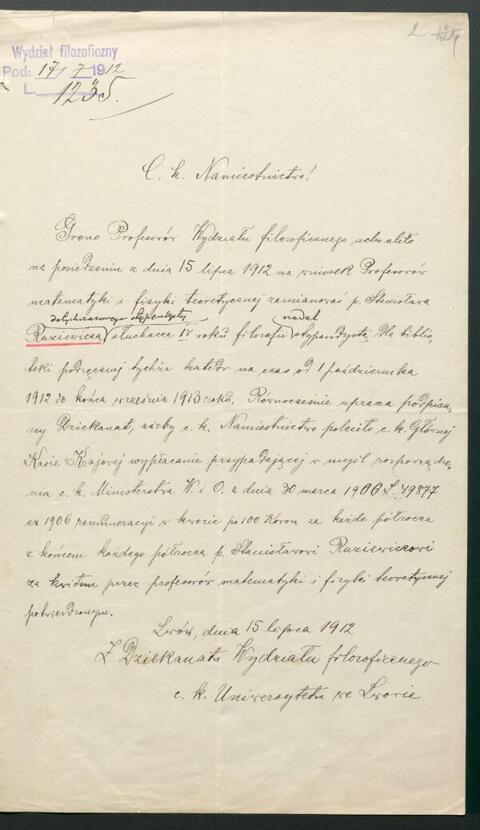 2
Wydział filozoficzny
Pod: 17/7 1912
L. 1235.
C. k. Namiestnictwo!
Grono Profesorów Wydziału filozoficznego uchwaliło
na posiedzeniu z dnia 15 lipca 1912 na wniosek Profesorów
matematyki i fizyki teoretycznej zamianować p. Stanisława
dotychczasowego stypendystę nadal
Ruziewicza słuchacza IV roku filozofii stypendystą dla biblio
teki podręcznej tychże katedr na czas od 1 października
1912 do końca września 1913 roku. Równocześnie uprasza podpisa-
ny Dziekanat, ażeby c. k. Namiestnictwo poleciło c. k. Głównej
Kasie Krajowej wypłacanie przypadającej w myśl rozporządze-
nia c. k. Ministerstwa W. i O. z dnia 30 marca 1906 L. 49877
ex 1906 remuneracyi w kwocie po 100 Koron za każde półrocze
z końcem każdego półrocza p. Stanisławowi Ruziewiczowi
za kwitem przez profesorów matematyki i fizyki teoretycznej
potwierdzonym.
Lwów, dnia 15 lipca 1912
Z Dziekanatu Wydziału filozoficznego
c. k. Uniwersytetu we Lwowie